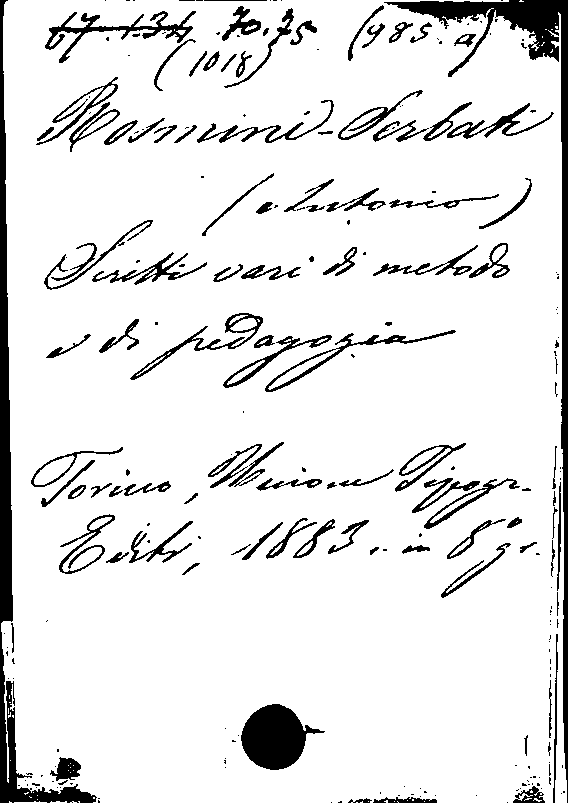 67.134 70.75 (985.a)
(1018)
Rosmini-Serbati
(Antonio)
Scritti vari di metodo
e di pedagogia
Torino, Unione Tipogr.
Editr, 1883. in 8° gr.